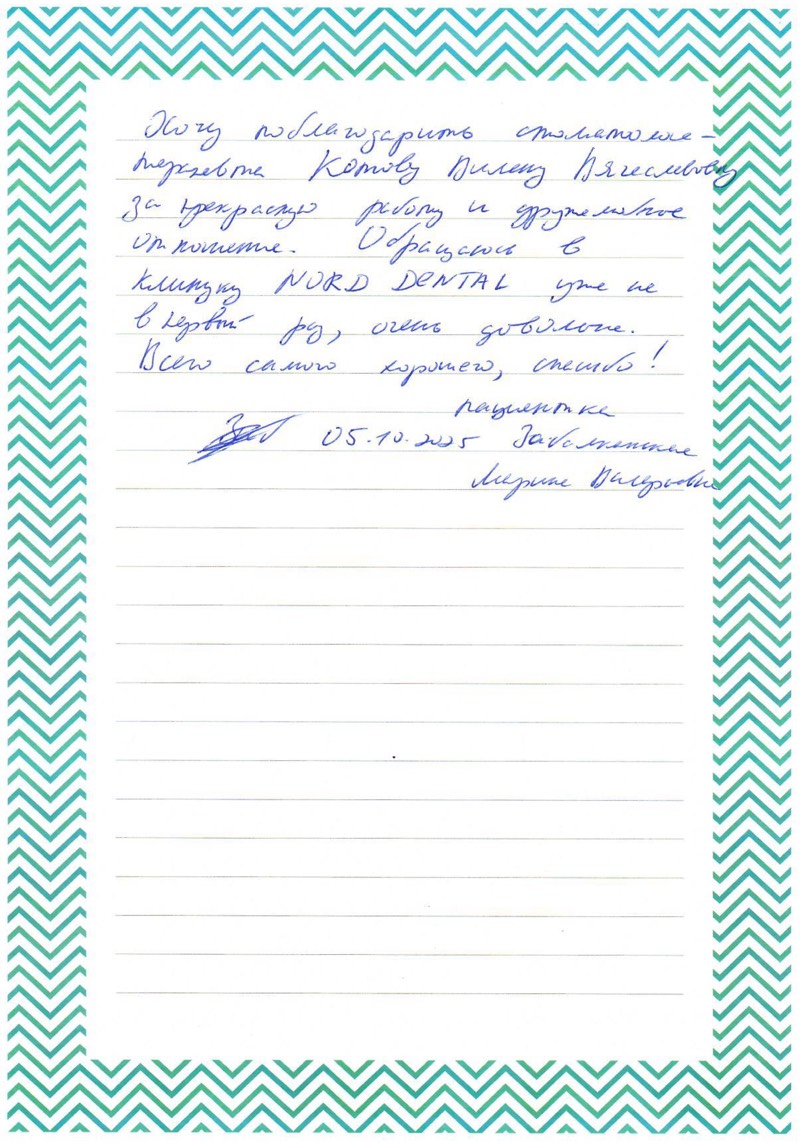 Хочу поблагодарить стоматолога-
терапевта Котову Вилену Вячеславовну
за прекрасную работу и дружелюбное
отношение. Обращаюсь в
клинику NORD DENTAL уже не
в первый раз, очень довольна.
Всего самого хорошего, спасибо!
пациентка
05.10.2025
Марина Валерьевна